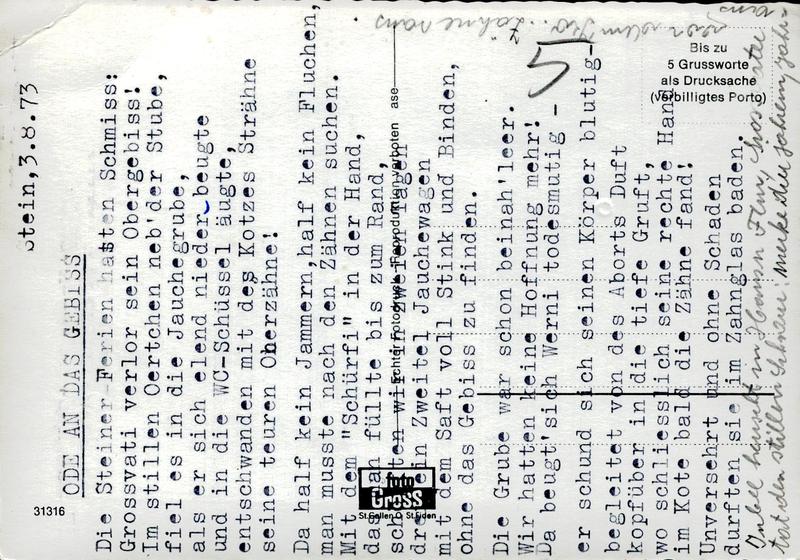 Stein,3.8.73
ODE AN DAS GEBISS
Die Steiner-Ferien hatten Schmiss:
Grossvati verlor sein Obergebiss!
Im stillen Oertchen neb'der Stube,
fiel es in die Jauchegrube,
als er sich elend niederbeugte
und in die WC-Schüssel äugte,
entschwanden mit des Kotzes Strähne
seine teuren Oberzähne!
Da half kein Jammern,half kein Fluchen,
man musste nach den Zähnen suchen.
Mit dem "Schürfi" in der Hand,
das man füllte bis zum Rand,
schöpften wir zwei
drei ein Zweitel Jauchewagen
mit dem Saft voll Stink und Binden,
ohne das Gebiss zu finden.
Die Grube war schon beinah'leer.
Wir hatten keine Hoffnung mehr!
Da beugt'sich Werni todesmutig -
er schund sich seinen Körper blutig-
begleitet von des Aborts Duft
kopfüber in die tiefe Gruft,
wo schliesslich seine rechte Hand
im Kote bald die Zähne fand!
Unversehrt und ohne Schaden
durften sie im Zahnglas baden.
Echter Fotodruck Reproduktion verboten
5
Bis zu
5 Grussworte
als Drucksache
(verbilligtes Porto)
foto
GROSS
St.Gallen O St.Fiden
31316